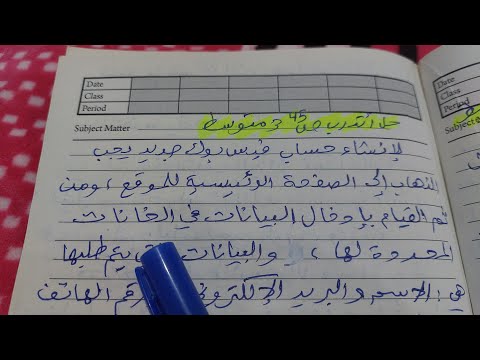 Date
Class
Period
Subject Matter
حل التدريب ص 45 3 متوسط
Date
Class
Period
Subject
لإنشاء حساب فيس بوك جديد يجب
الذهاب إلى الصفحة الرئيسية للموقع، ومن
ثم القيام بإدخال البيانات في الخانات
المحدودة لها، والبيانات يتم طلبها
هي: الاسم والبريد الإلكتروني رقم الهاتف